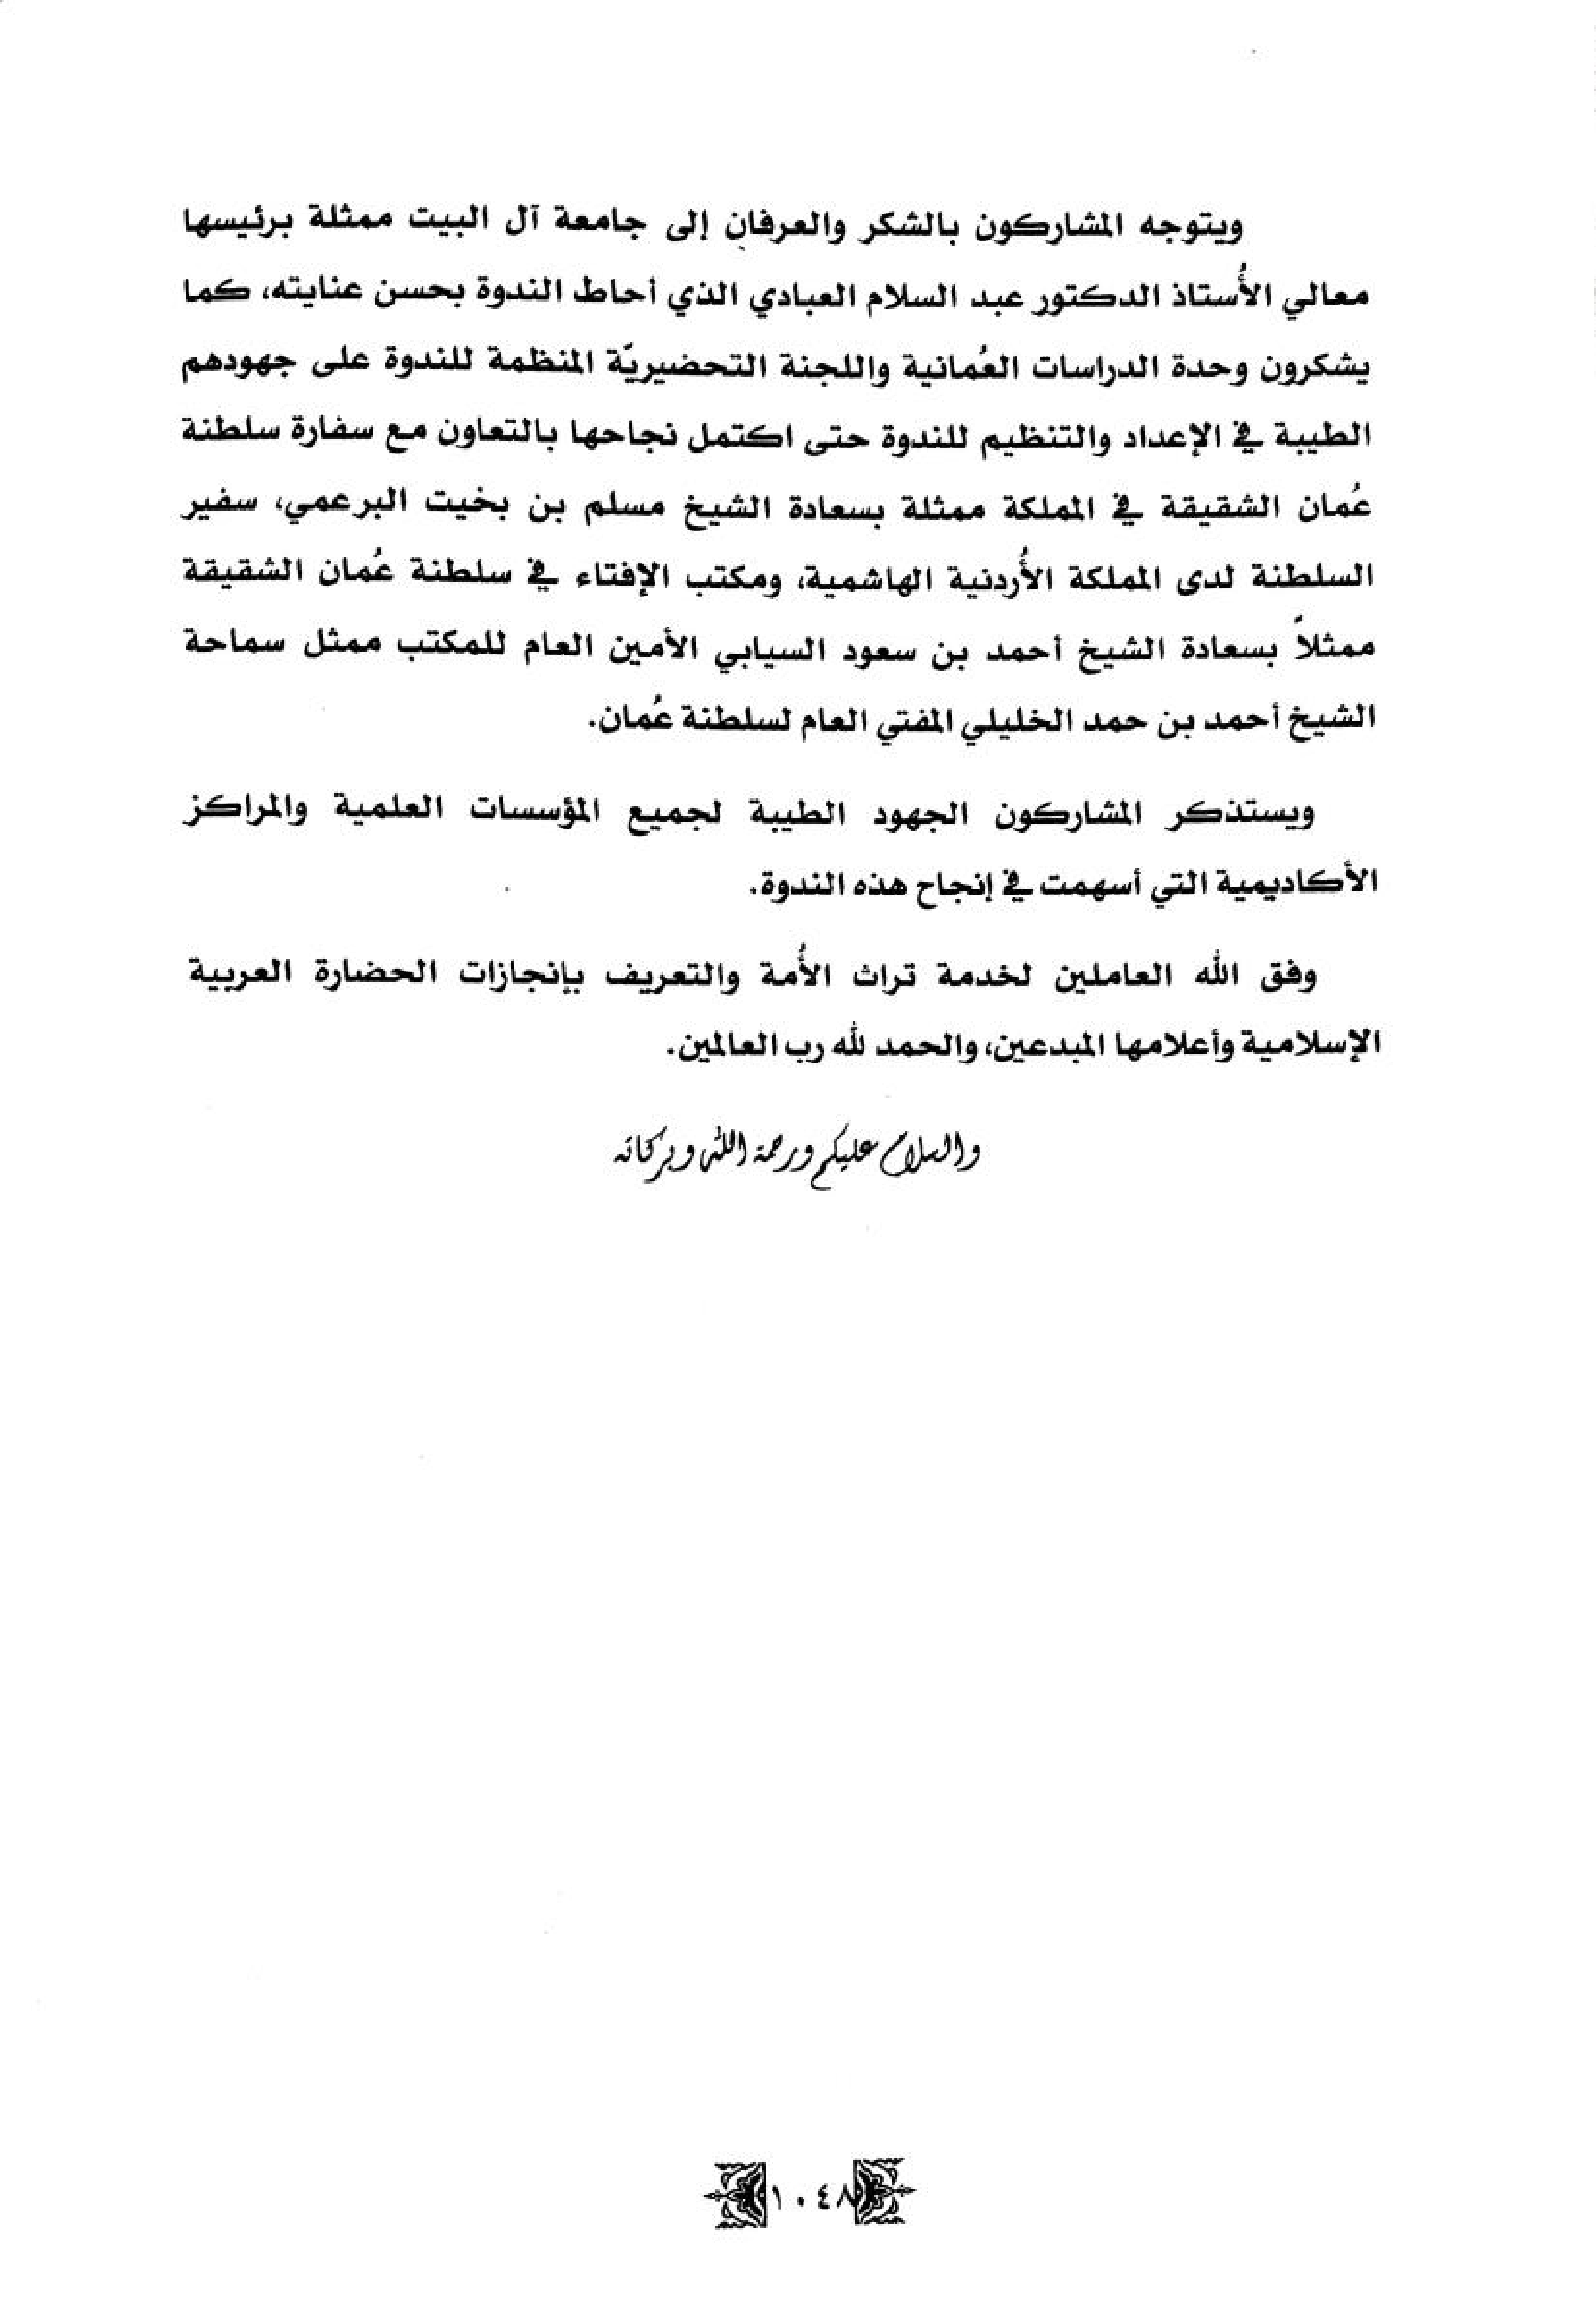 ويتوجه المشاركون بالشكر والعرفان إلى جامعة آل البيت ممثلة برئيسها
معالي الأُستاذ الدكتور عبد السلام العبادي الذي أحاط الندوة بحسن عنايته، كما
يشكرون وحدة الدراسات العُمانية واللجنة التحضيريّة المنظمة للندوة على جهودهم
الطيبة في الإعداد والتنظيم للندوة حتى اكتمل نجاحها بالتعاون مع سفارة سلطنة
عُمان الشقيقة في المملكة ممثلة بسعادة الشيخ مسلم بن بخيت البرعمي، سفير
السلطنة لدى المملكة الأُردنية الهاشمية، ومكتب الإفتاء في سلطنة عُمان الشقيقة
ممثلاً بسعادة الشيخ أحمد بن سعود السيابي الأمين العام للمكتب ممثل سماحة
الشيخ أحمد بن حمد الخليلي المفتي العام لسلطنة عُمان.
ويستذكر المشاركون الجهود الطيبة لجميع المؤسسات العلمية والمراكز
الأكاديمية التي أسهمت في إنجاح هذه الندوة.
وفق الله العاملين لخدمة تراث الأُمة والتعريف بإنجازات الحضارة العربية
الإسلامية وأعلامها المبدعين، والحمد لله رب العالمين.
والسلام عليكم ورحمة الله وبركاته
١٠٤٨